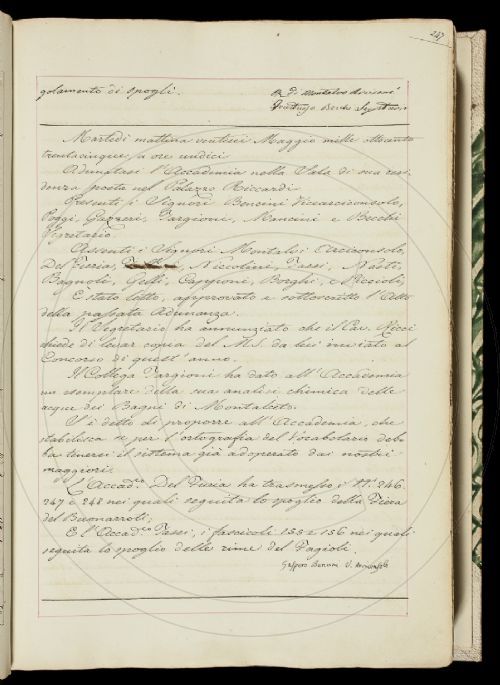 247
golamento di spogli.
Martedì mattina ventisei Maggio mille ottocento
trentacinque a ore undici
Adunatasi l'Accademia nella Sala di sua resi-
denza posta nel Palazzo Riccardi
Presenti i Signori Bencini Vicearciconsolo,
Poggi, Gazzeri, Targioni, Mancini e Becchi
Segretario.
Assenti i Signori Montalvi Arciconsolo,
Del Furia, Niccolini, Tassi, Nesti,
Bagnoli, Gelli, Capponi, Borghi, e Riccioli,
È stato letto, approvato e sottoscritto l'Atto
della passata Adunanza.
Il Segretario ha annunziato che il Cav. Ricci
chiede di levar copia del M.S. da lui inviato al
Concorso di quest'anno.
Il Collega Targioni ha dato all'Accademia
un esemplare della sua analisi chimica delle
acque dei Bagni di Montalceto.
S'è detto di proporre all'Accademia, che
stabilisca se per l'ortografia del Vocabolario deb-
ba tenersi il sistema già adoperato dai nostri
maggiori.
L'Accad.co Del Furia ha trasmesso i N.i 246.
247 e 248 nei quali seguita lo spoglio della Fiera
del Buonarroti;
E l'Accad.co Tassi, i fascicoli 155 e 156 nei quali
seguita lo spoglio delle rime del Fagioli.
Gaspero Bencini V. Arciconsolo